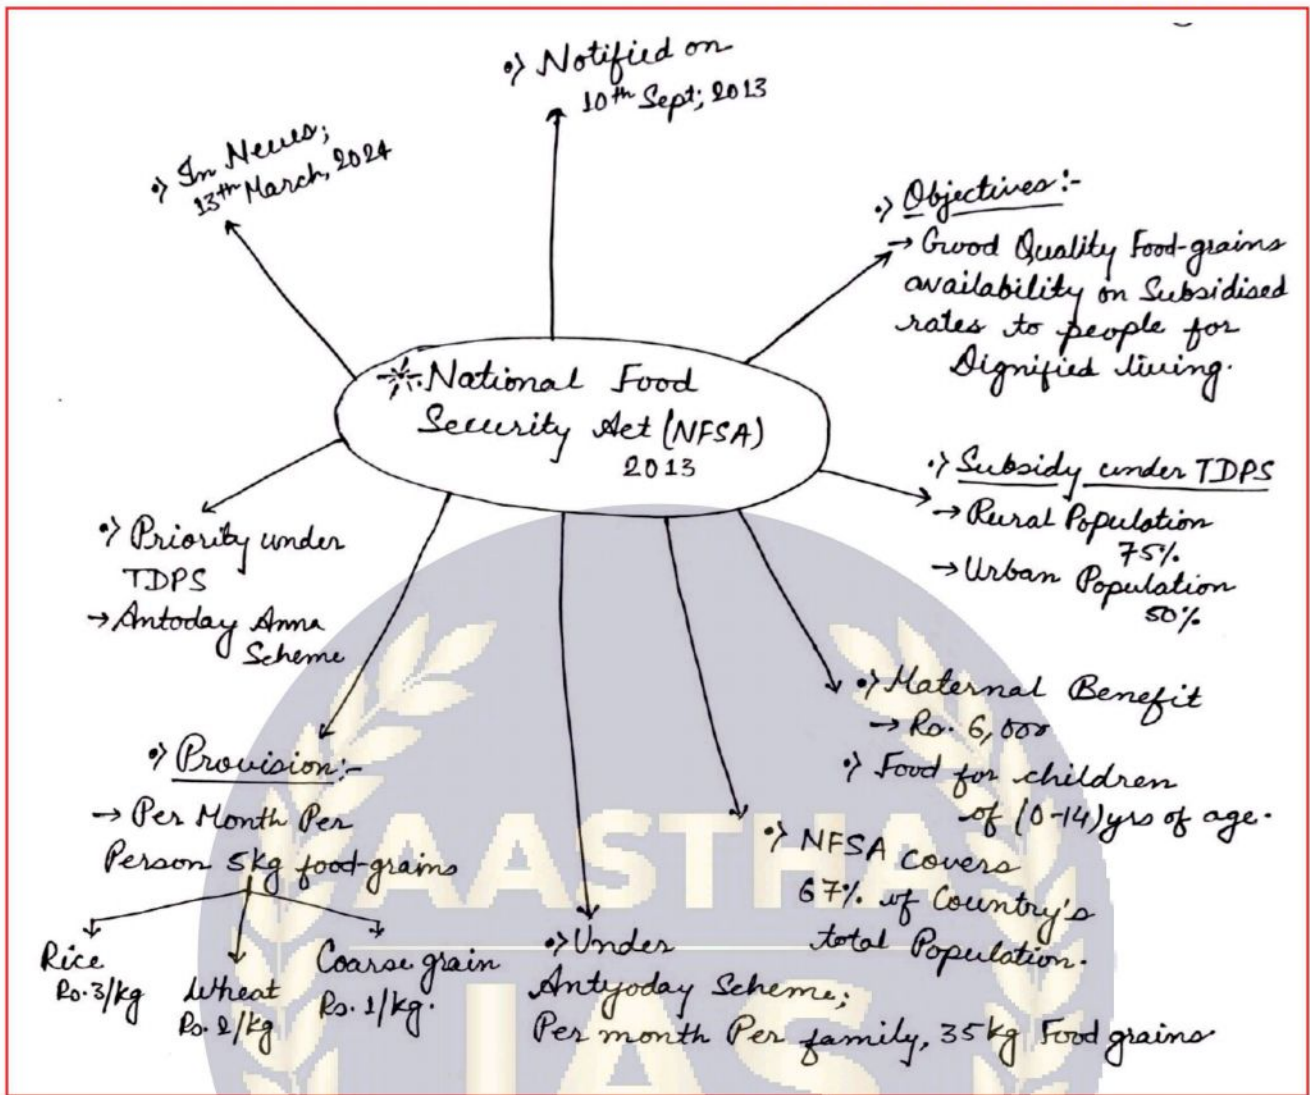 •> Notified on
10th Sept; 2013
•> In News;
13th March, 2024
•> Objectives:-
→ Good Quality Food-grains
availability on Subsidised
rates to people for
Dignified living.
☀.National Food
Security Act (NFSA)
2013
•> Subsidy under TDPS
→ Rural Population
75%
→ Urban Population
50%
•> Priority under
TDPS
→ Antoday Anna
Scheme
•> Maternal Benefit
→ Rs. 6,000
•> Food for children
of (0-14)yrs of age.
•> Provision:-
→ Per Month Per
Person 5kg food-grains
Rice
Rs. 3/kg
Wheat
Rs. 2/kg
Coarse grain
Rs. 1/kg.
•> NFSA covers
67% of Country's
total Population.
•> Under
Antyoday Scheme;
Per month Per family, 35kg Food grains
AASTHA
IAS